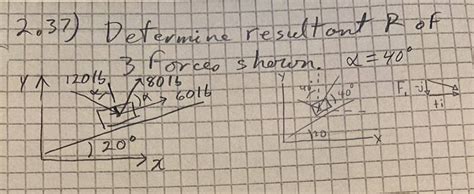 2.37) Determine resultant R of
3 forces shown. α = 40°
Y 120lb 80lb Y
α α 60lb 40° F₁ -j
α +i
20° 20
x x